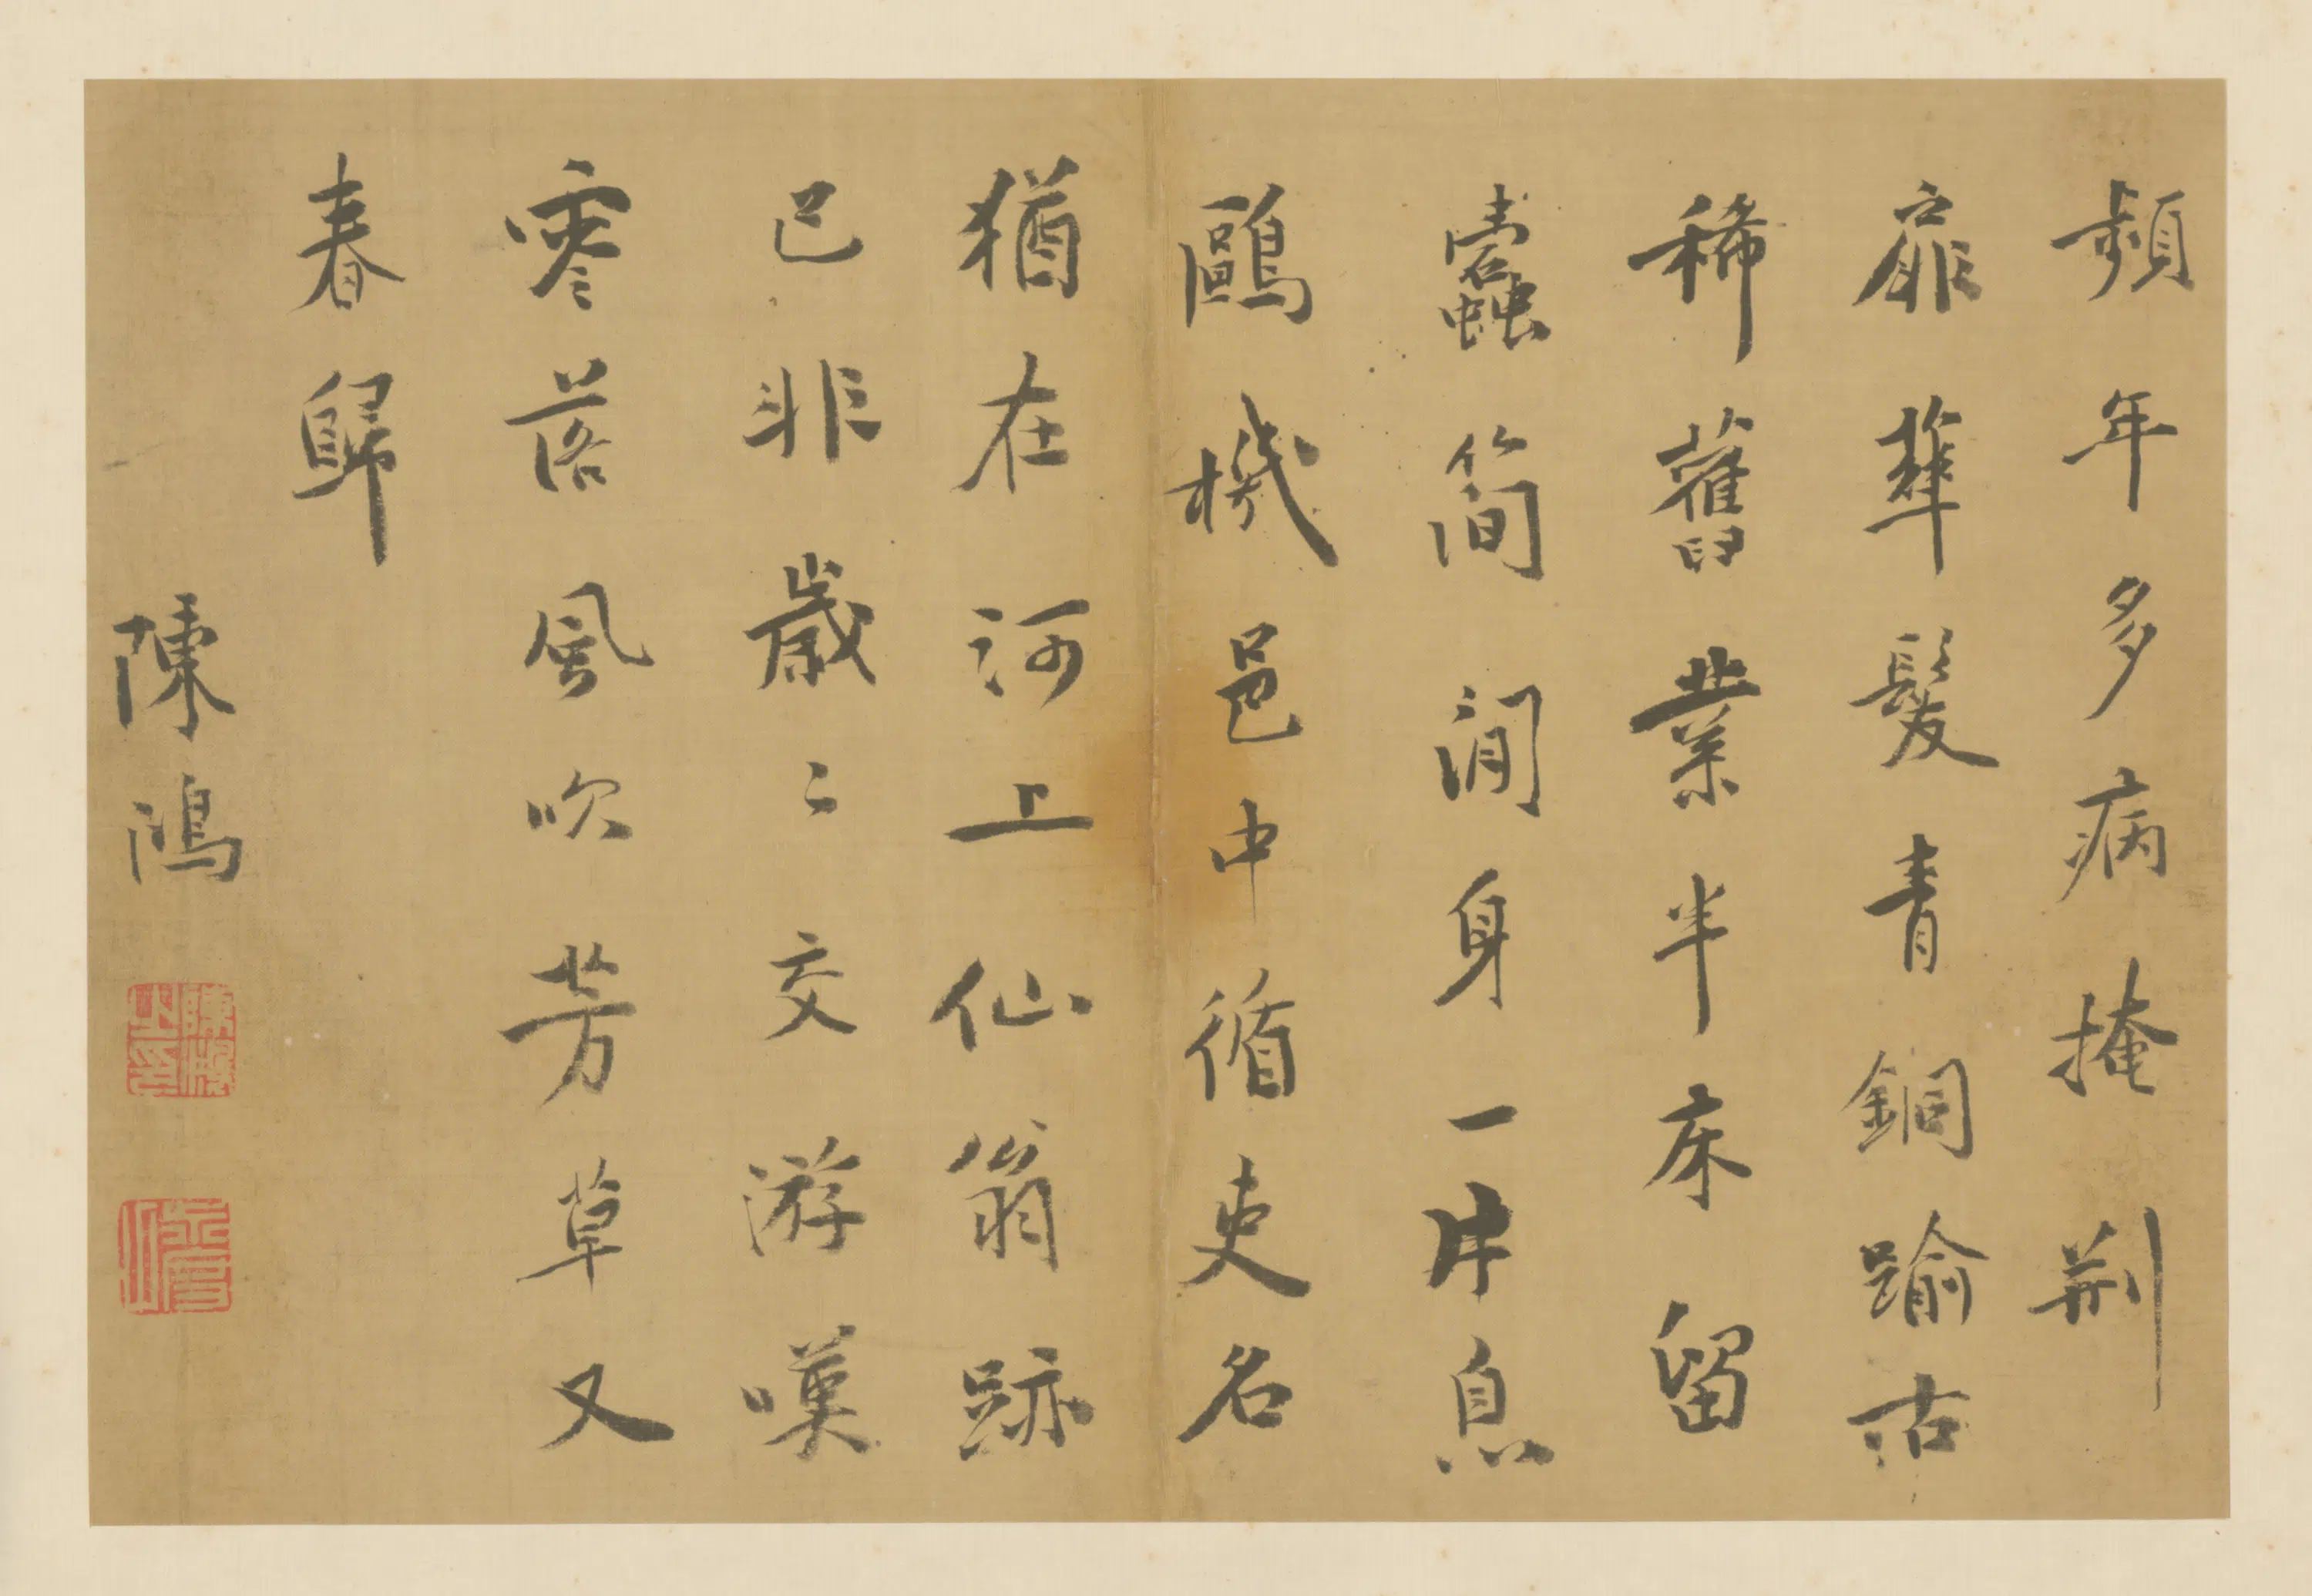 頻年多病掩荆
扉華髮青銅踰古
稀舊業半床留
蠹簡閒身一片息
鷗機邑中循吏名
猶在河上仙翁跡
已非歲〻交游嘆
零落風吹芳草又
春歸
陳鴻
陳鴻之印